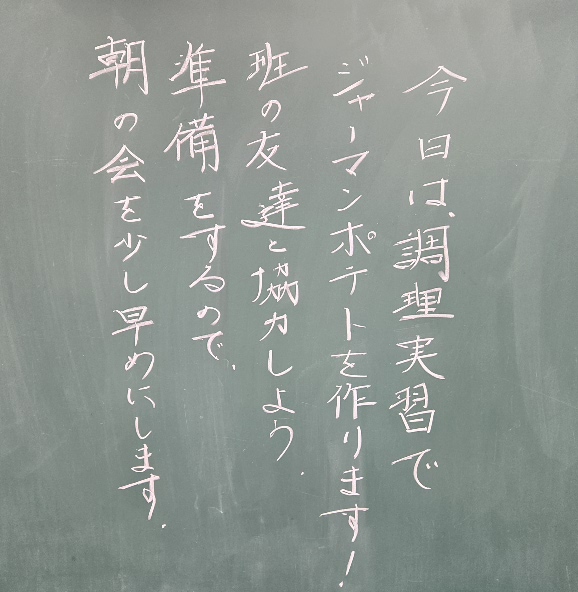 今日は、調理実習で
ジャーマンポテトを作ります！
班の友達と協力しよう．
準備をするので、
朝の会を少し早めにします．